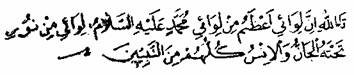 تالله إنّ لوائي أعظم من لوائي محمّد عليه السّلام، لوائي من نور
تحته الجانّ والانس كلّهم من النّبيّين